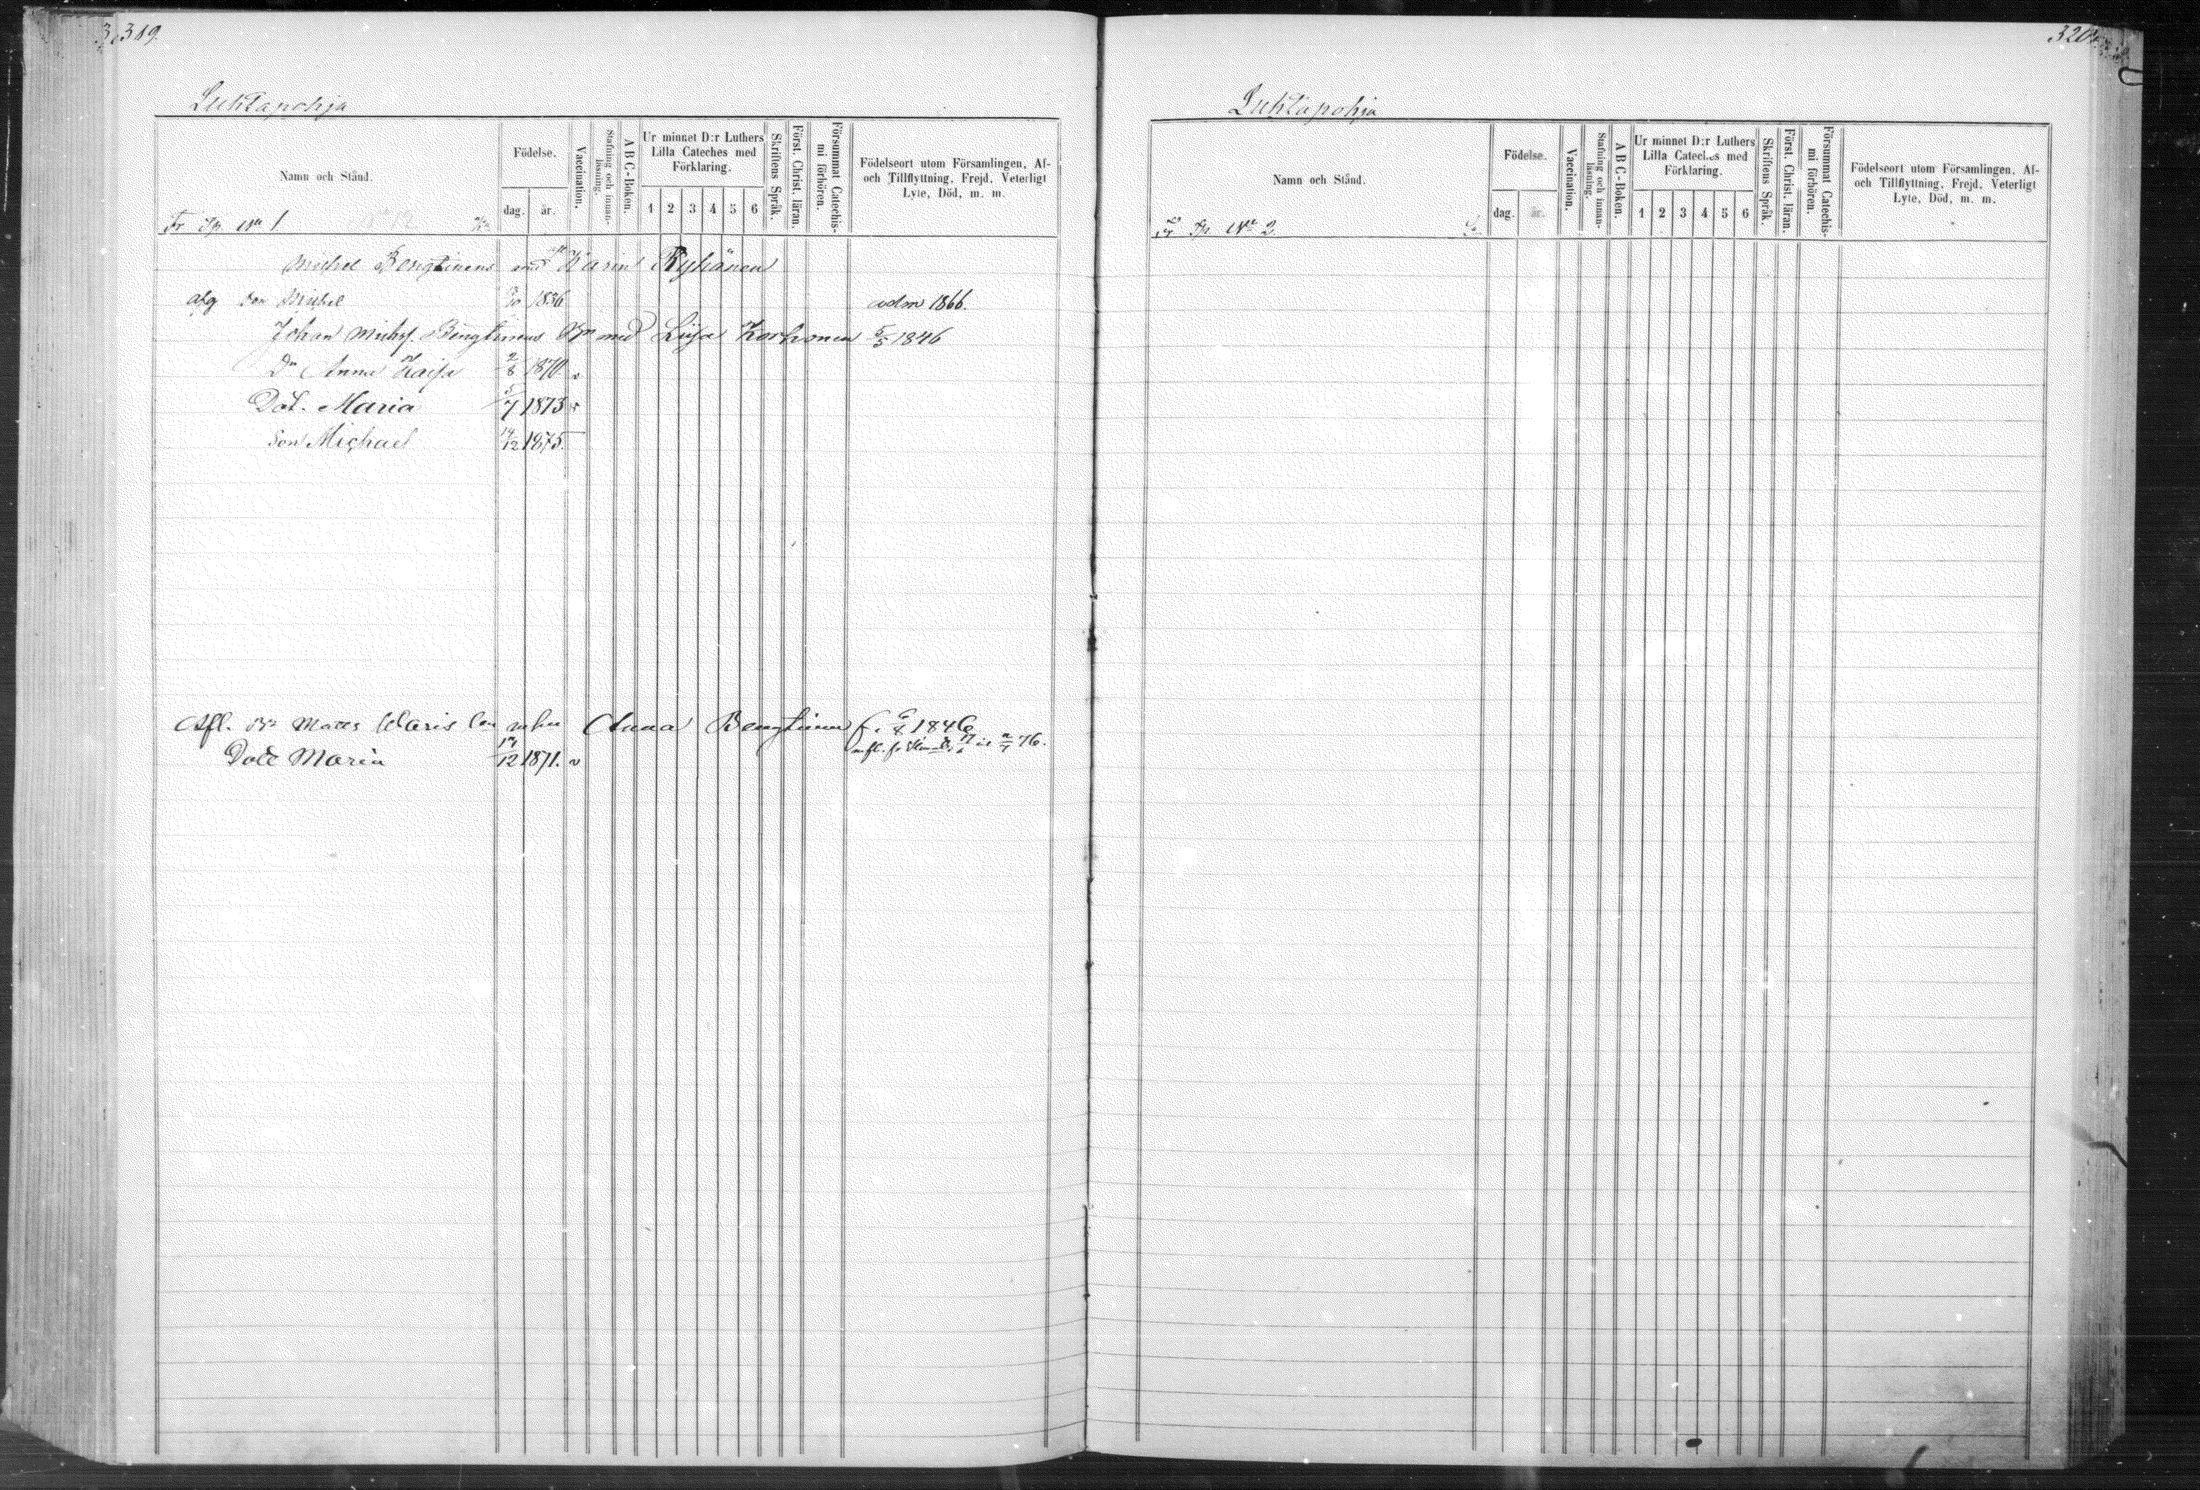 319.
Luhtapohja
Namn och Stånd.
Födelse.
dag.
år.
Vaccination.
Stafning och innanläsning.
A B C-Boken.
Ur minnet D:r Luthers Lilla Cateches med Förklaring.
1 2 3 4 5 6
Skriftens Språk.
Först. Christ. läran.
Försummat Catechismi förhören.
Födelseort utom Församlingen, Af- och Tillflyttning, Frejd, Veterligt Lyte, Död, m. m.
No 1
Michel Bengtinens Karin Ryhänen
Son Michel 1836 1866.
Johan Bengtinens med Liisa Korhonen 5/5 1846
Dr Anna Kaisa 1870. v
Dot. Maria 5/7 1873 v
Son Michael 14/12 1875.
Matts Anna Bengtinen f. 1846
Dott Maria 12 1871. v 76.
320
Luhtapohja
Namn och Stånd.
Födelse.
dag.
år.
Vaccination.
Stafning och innanläsning.
A B C-Boken.
Ur minnet D:r Luthers Lilla Cateches med Förklaring.
1 2 3 4 5 6
Skriftens Språk.
Först. Christ. läran.
Försummat Catechismi förhören.
Födelseort utom Församlingen, Af- och Tillflyttning, Frejd, Veterligt Lyte, Död, m. m.
No 2